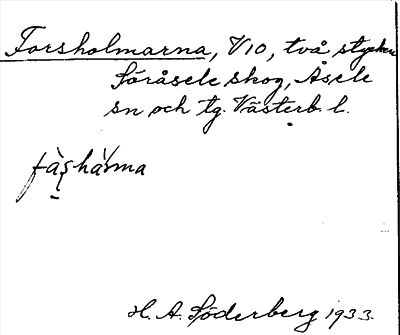 Forsholmarna, V10, två stycken
Söråsele skog, Åsele
sn och tg. Västerb. l.
H. A. Söderberg 1933.